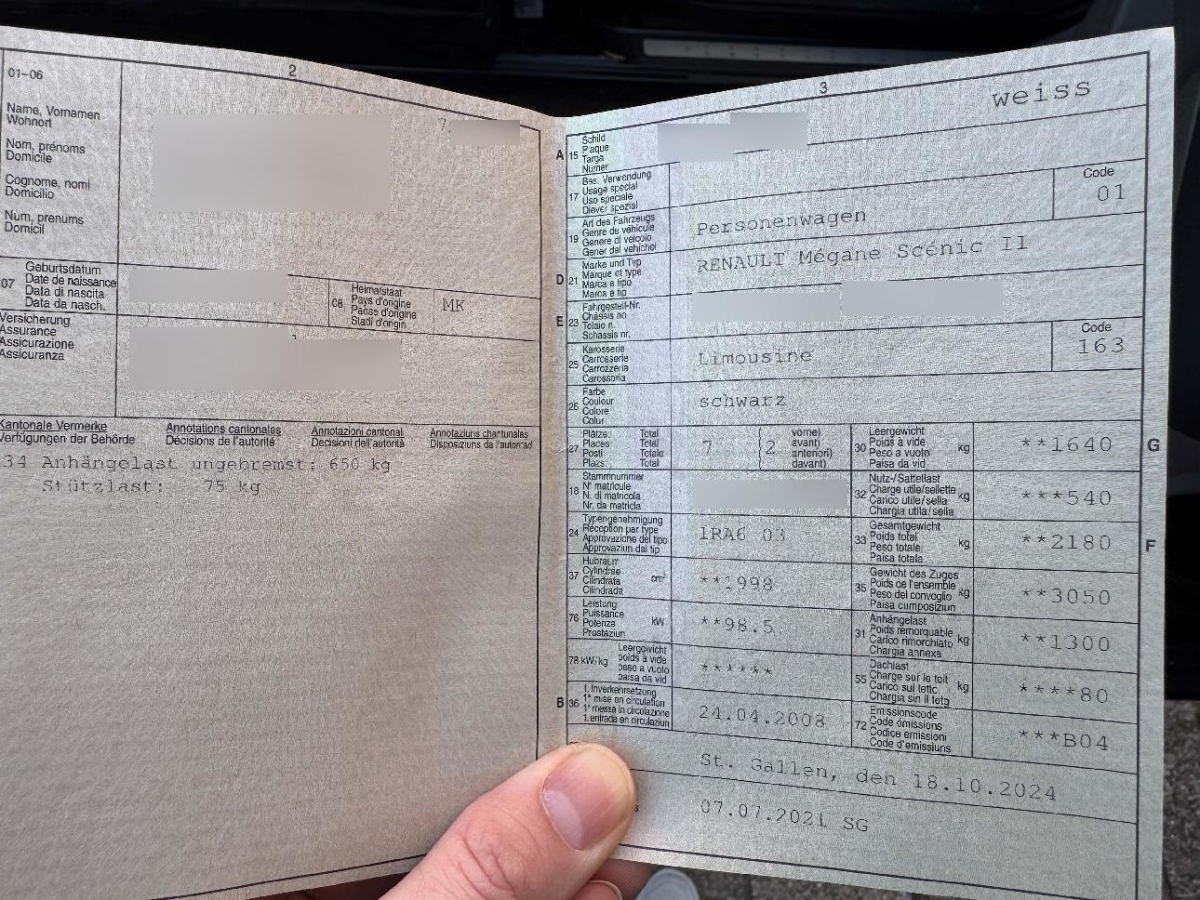 2
01–06
Name, Vornamen
Wohnort
Nom, prénoms
Domicile
Cognome, nomi
Domicilio
Num, prenums
Domicil
7.
07
Geburtsdatum
Date de naissance
Data di nascita
Data da nasch.
08
Heimatstaat
Pays d'origine
Paese d'origine
Stadi d'origin
MK
Versicherung
Assurance
Assicurazione
Assicuranza
Kantonale Vermerke
Verfügungen der Behörde
Annotations cantonales
Décisions de l'autorité
Annotazioni cantonali
Decisioni dell'autorità
Annotaziuns chantunalas
Disposiziuns da l'autoritad
34 Anhängelast ungebremst: 650 kg
Stützlast: 75 kg
3
weiss
A 15
Schild
Plaque
Targa
Numer
17
Bes. Verwendung
Usage spécial
Uso speciale
Diever spezial
19
Art des Fahrzeugs
Genre de véhicule
Genere di veicolo
Gener dal vehichel
Personenwagen
Code
01
D 21
Marke und Typ
Marque et type
Marca e tipo
Marca e tip
RENAULT Mégane Scénic II
E 23
Fahrgestell-Nr.
Châssis no
Telaio n.
Schassis nr.
25
Karosserie
Carrosserie
Carrozzeria
Carossaria
Limousine
Code
163
26
Farbe
Couleur
Colore
Colur
schwarz
27
Plätze: Total
Places: Total
Posti: Totale
Plazs: Total
7 (2
vorne)
avant)
anteriori)
davant)
30
Leergewicht
Poids à vide
Peso a vuoto
Paisa da vid
kg
**1640
G
18
Stammnummer
N° matricule
N. di matricola
Nr. da matricla
32
Nutz-/Sattellast
Charge utile/sellette
Carico utile/sella
Chargia utila/sella
kg
***540
24
Typengenehmigung
Réception par type
Approvazione del tipo
Approvaziun dal tip
1RA6 03
33
Gesamtgewicht
Poids total
Peso totale
Paisa totala
kg
**2180
F
37
Hubraum
Cylindrée
Cilindrata
Cilindrada
cm³
**1998
35
Gewicht des Zuges
Poids de l'ensemble
Peso del convoglio
Paisa cumposiziun
kg
**3050
76
Leistung
Puissance
Potenza
Prestaziun
kW
**98.5
31
Anhängelast
Poids remorquable
Carico rimorchiato
Chargia annexa
kg
**1300
78 kW/kg
Leergewicht
poids à vide
peso a vuoto
paisa da vid
******
55
Dachlast
Charge sur le toit
Carico sul tetto
Chargia sin il tetg
kg
****80
B 36
1. Inverkehrsetzung
1re mise en circulation
1a messa in circolazione
1. entrada en circulaziun
24.04.2008
72
Emissionscode
Code émissions
Codice emissioni
Code d'emissiuns
***B04
St. Gallen, den 18.10.2024
07.07.2021 SG